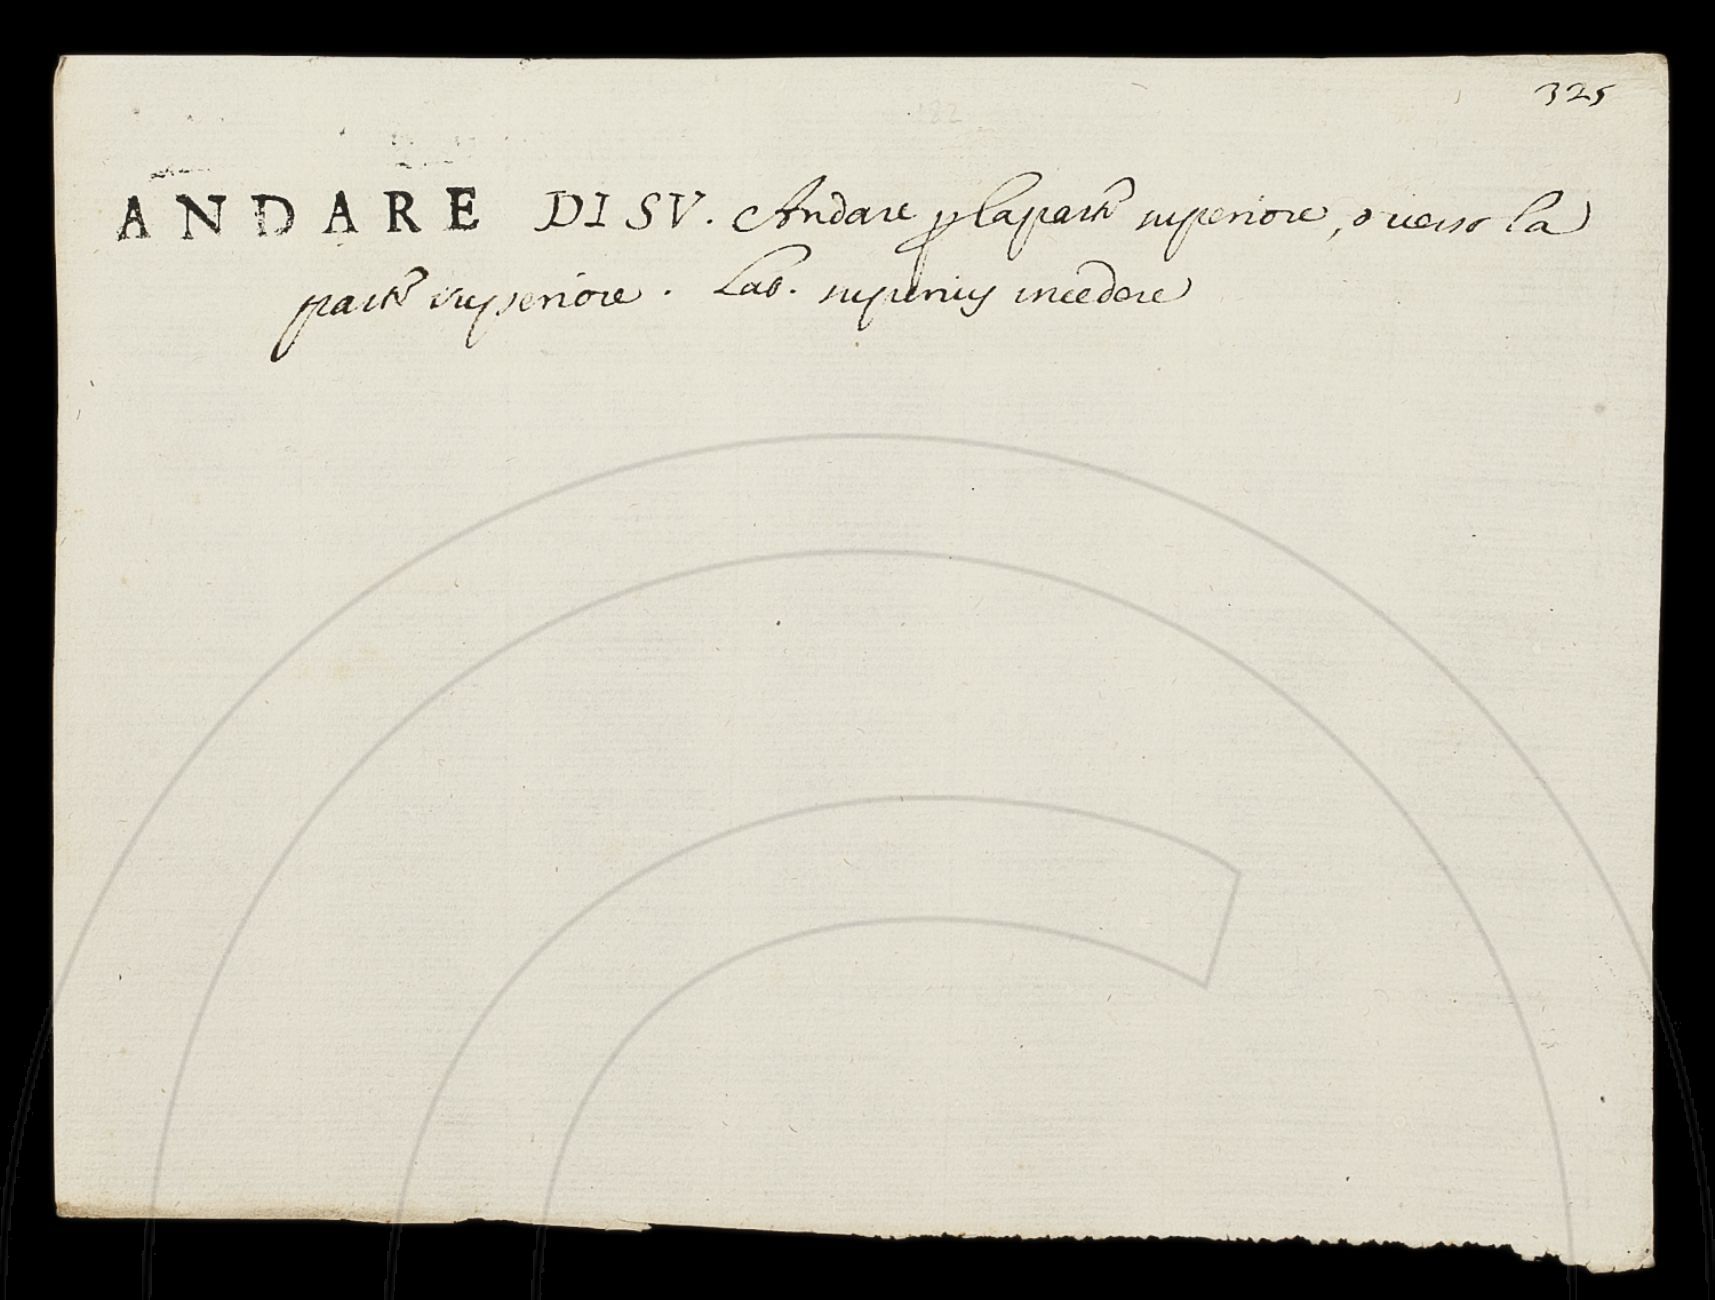 325
ANDARE DI SV. Andare p la parte superiore, o verso la
parte superiore. Lat. superius incedere